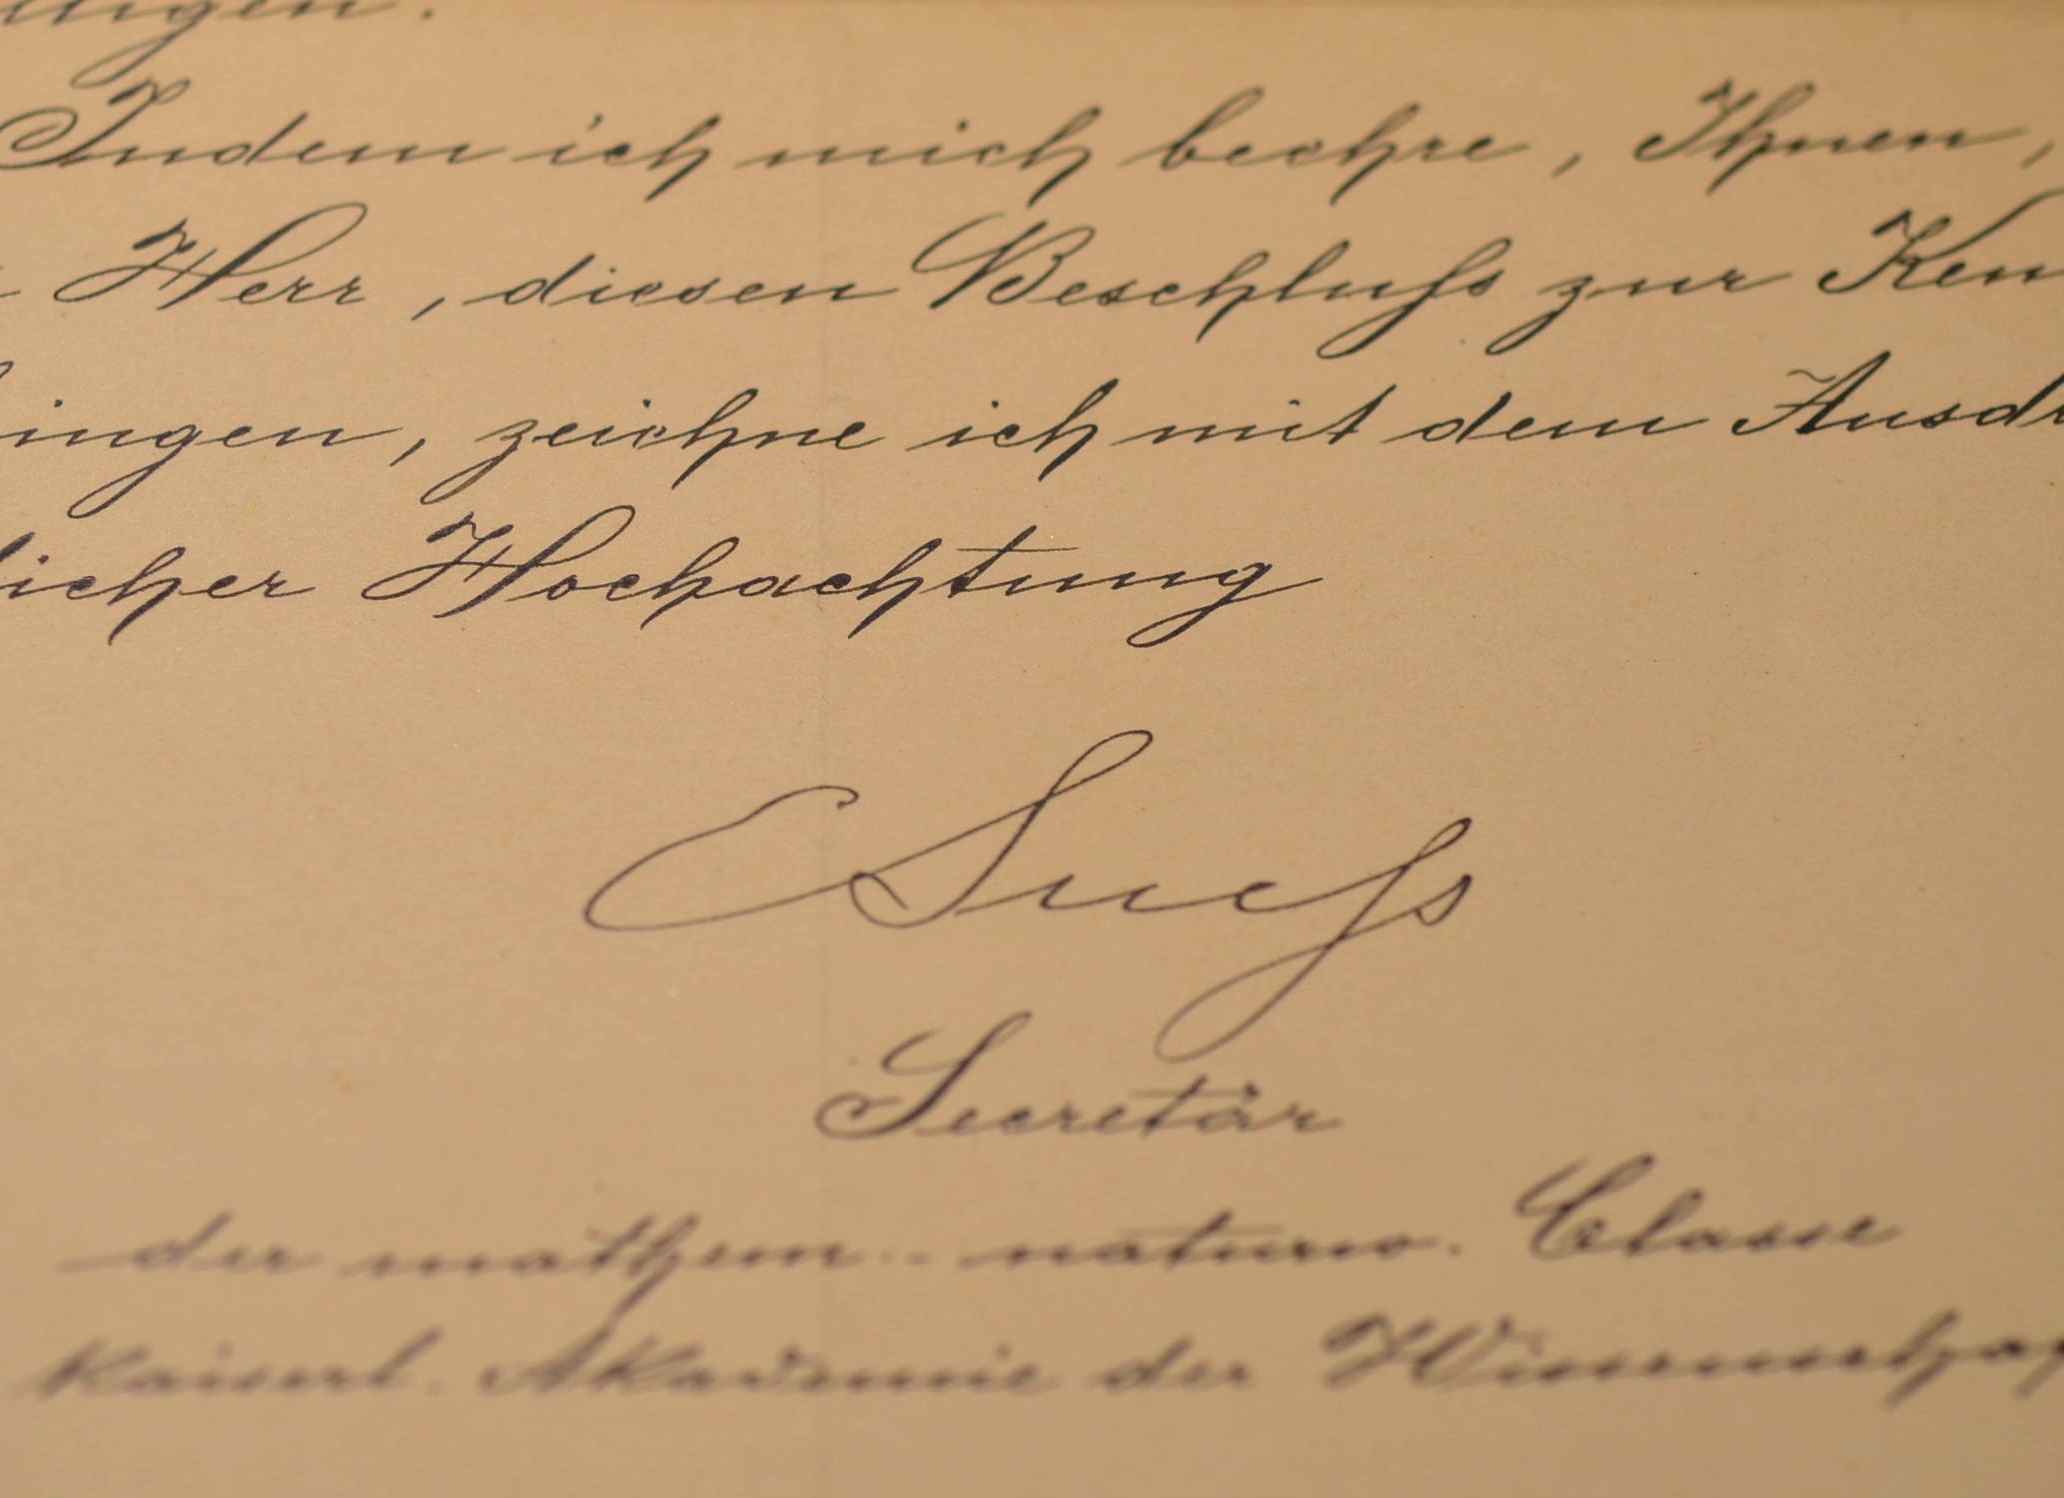 lligen.
Indem ich mich beehre, Ihnen,
Herr, diesen Beschluss zur Ken
ingen, zeichne ich mit dem Ausdr
licher Hochachtung
ESuess
Secretär
der mathem.- naturw. Classe
Kaiserl. Akademie der Wissenschaf